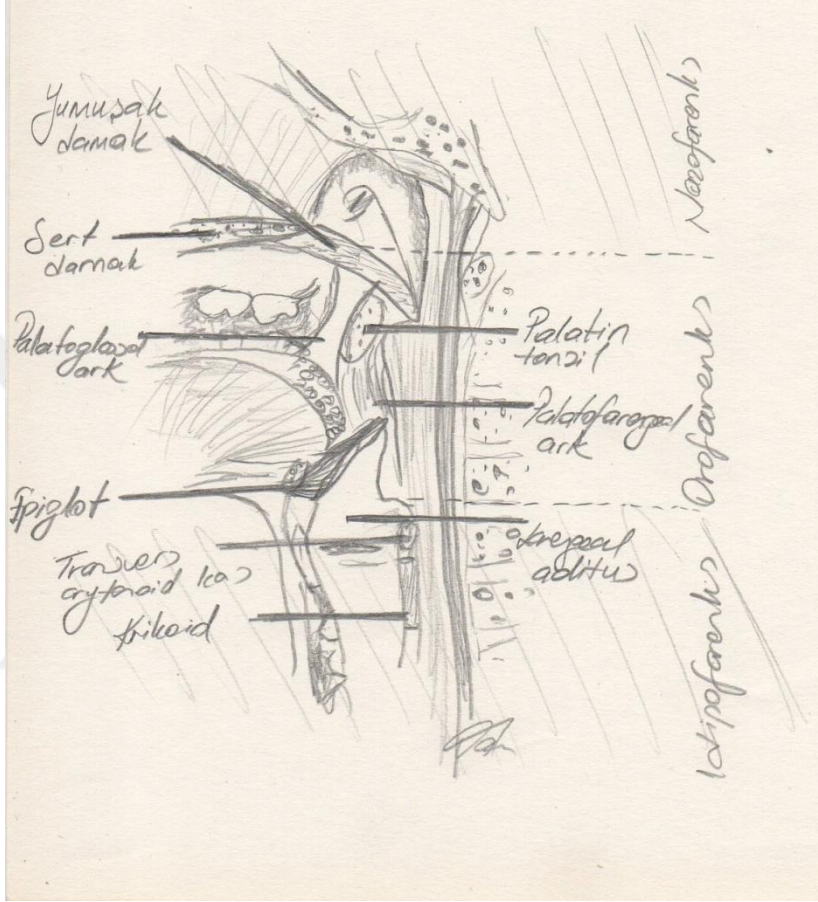 Yumuşak
damak
Sert
damak
Palatoglossal
ark
Epiglot
Transvers
arytenoid kas
Krikoid
Palatin
tonsil
Palatofaregeal
ark
Laregeal
aditus
Nazofarenks
Orofarenks
Hipofarenks